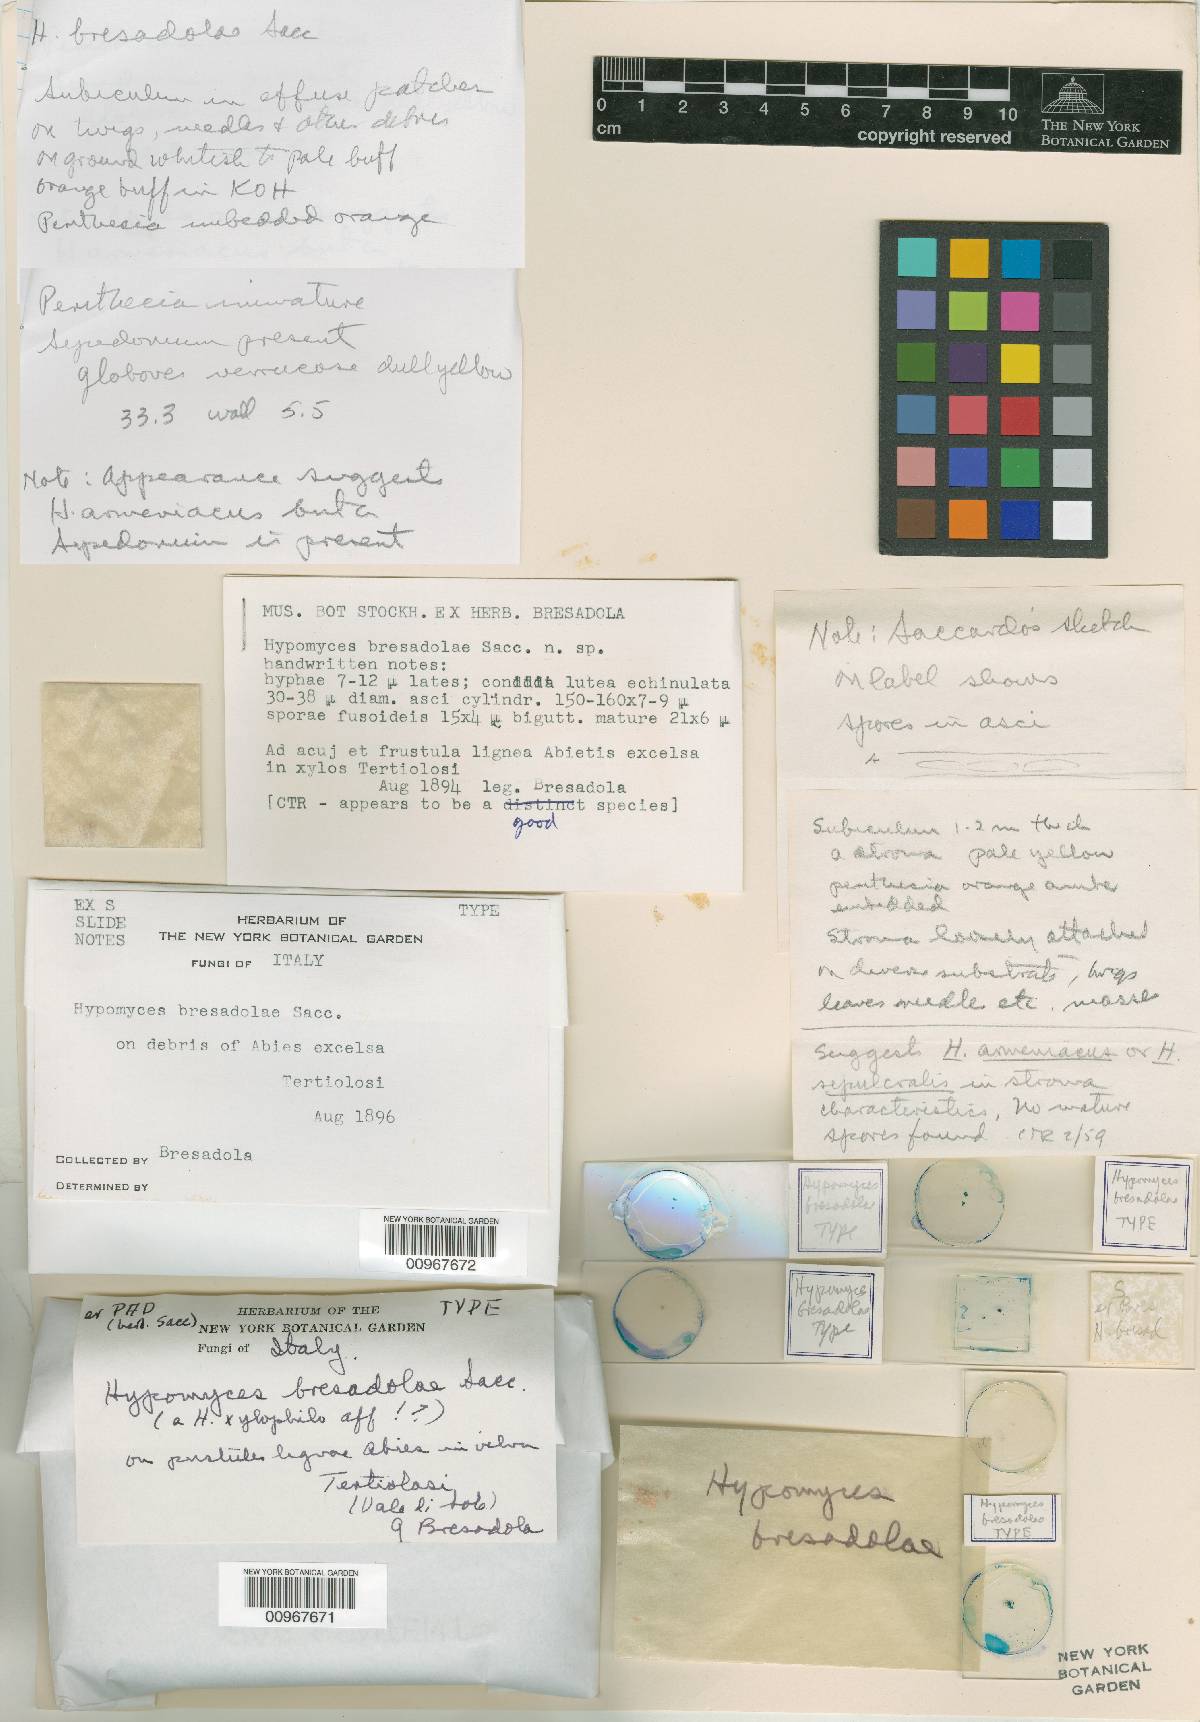 H. bresadolae Sacc
Subiculum in effuse patches
on twigs, needles & other debris
on ground whitish to pale buff
orange buff in KOH
Perithecia imbedded orange
Perithecia immature
Sepedonium present
globoves verrucose dull yellow
33.3 wall 5.5
Note: Appearance suggests
H. armeniacus but a
Sepedonium is present
0 1 2 3 4 5 6 7 8 9 10
cm
copyright reserved
THE NEW YORK
BOTANICAL GARDEN
MUS. BOT STOCKH. EX HERB. BRESADOLA
Hypomyces bresadolae Sacc. n. sp.
handwritten notes:
hyphae 7-12 µ lates; lutea echinulata
30-38 µ diam. asci cylindr. 150-160x7-9 µ
sporae fusoideis 15x4 µ bigutt. mature 21x6 µ
Ad acuj et frustula lignea Abietis excelsa
in xylos Tertiolosi
Aug 1894 leg. Bresadola
[CTR - appears to be a distinct species]
good
Note: Saccardo's sketch
on label shows
spores in asci
Subiculum 1-2 m thick
a stroma pale yellow
perithesia orange amber
embedded
Stroma loosely attached
on diverse substrate, twigs
leaves needle etc. mosses
Suggests H. armeniacus or H.
sepulcralis in stroma
characteristics, No mature
spores found CTR 2/59
EX S
SLIDE
NOTES
TYPE
HERBARIUM OF
THE NEW YORK BOTANICAL GARDEN
FUNGI OF ITALY
Hypomyces bresadolae Sacc.
on debris of Abies excelsa
Tertiolosi
Aug 1896
COLLECTED BY Bresadola
DETERMINED BY
NEW YORK BOTANICAL GARDEN
00967672
Hypomyces
bresadolae
TYPE
Hypomyces
bresadolae
TYPE
Hypomyces
bresadolae
Type
S
ex Bres
H. bresad
ex PAD
(herb. Sacc)
HERBARIUM OF THE
NEW YORK BOTANICAL GARDEN
TYPE
Fungi of Italy.
Hypomyces bresadolae Sacc.
(a H. xylophilo aff !?)
on lignae Abies in
Tertiolasi
(Vale di Sole)
G Bresadola
NEW YORK BOTANICAL GARDEN
00967671
Hypomyces
bresadolae
Hypomyces
bresadolae
TYPE
NEW YORK
BOTANICAL
GARDEN